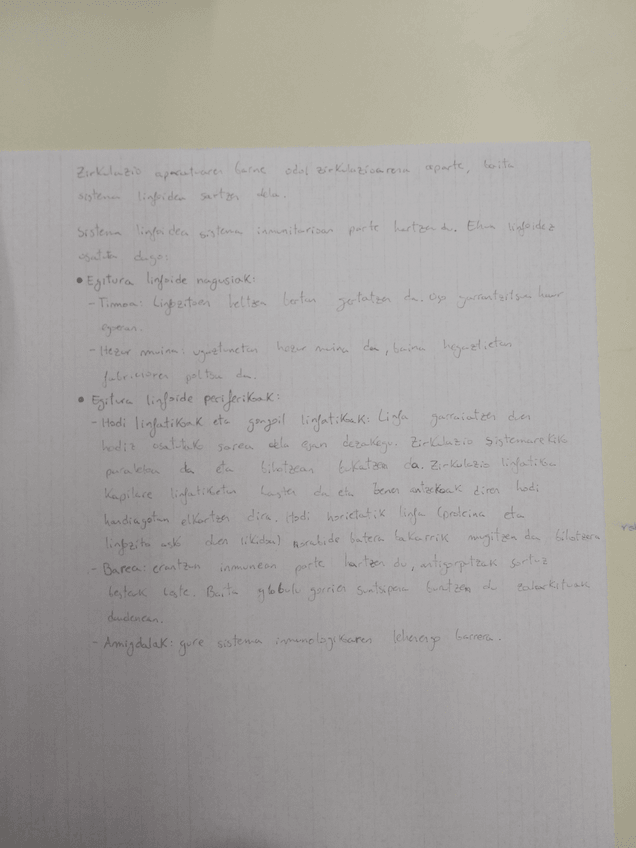 Zirkulazio aparatuaren baina odol zirkulazioaren aparte, baita
sistema linfoidea sartzen da.
Sistema linfoidea sistema inmunitarioan parte hartzen du. Ehun linfoidez
osatuta dago:
• Egitura linfoide nagusiak:
- Timoa: Linfozitoen heltzea bertan gertatzen da. Oso garrantzitsua haur
- Hezur muina: ugaztunetan hezur muina da, baina hegaztietan
fabrizioren poltsa da.
• Egitura linfoide periferikoak:
- Hodi linfatikoak eta gongoil linfatikoak: Linfa garraiatzen duen
hodiz osatutako sarea dela esan dezakegu. Zirkulazio sistemarekiko
paraleloa da eta bihotzean bukatzen da. Zirkulazio linfatikoa
kapilare linfatikoetan hasten da eta benen antzekoak diren hodi
handiagotan elkartzen dira. Hodi horietatik linfa (proteina eta
linfozito asko duen likidoa) norabide batera bakarrik mugitzen da bihotzera
- Barea: erantzun inmunean parte hartzen du, antigorputzak sortuz
besteak beste. Baita globulu gorrien suntsipena burutzen du zaharkituak
daudenean.
- Amigdalak: gure sistema inmunologikoaren lehenengo barrera.